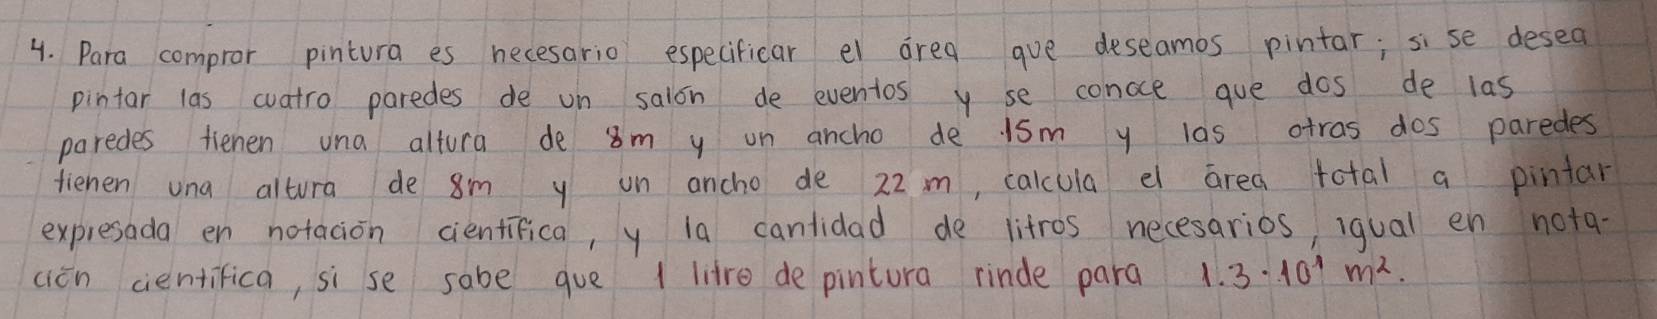 4. Para comprar pintura es necesario especificar el área que deseamos pintar; si se desea
pintar las cuatro paredes de un salón de eventos y se conoce que dos de las
paredes tienen una altura de 8m y un ancho de 15m y las otras dos paredes
tienen una altura de 8m y un ancho de 22 m, calcula el área total a pintar
expresada en notación científica, y la cantidad de litros necesarios, igual en nota-
ción científica, si se sabe que 1 litro de pintura rinde para 1.3·10¹ m².